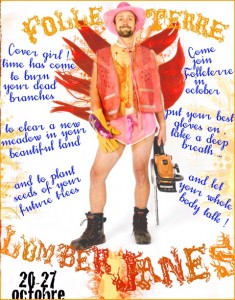 FOLLETERRE
Cover girl !
time has come
to burn
your dead
branches
Come
join
Folleterre
in
october
to clear a new
meadow in your
beautiful land
put your best
gloves on..
take a deep
breath...
and to plant
seeds of your
future trees
and let
your whole
body talk !
LUMBERJANES
20-27
octobre